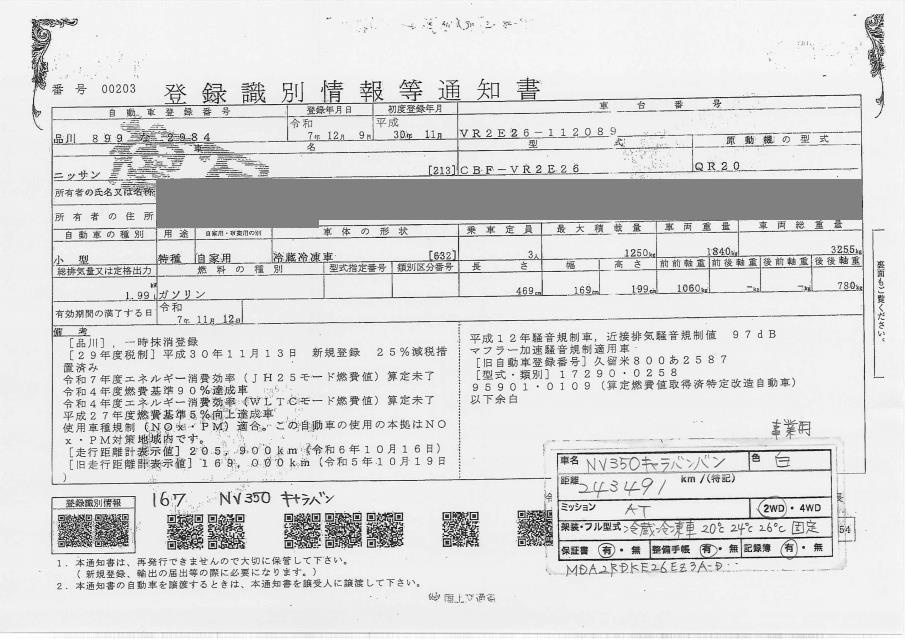 番号 00203 登録識別情報等通知書
自動車登録番号 登録年月日 初度登録年月 車台番号
品川 899 2984 令和 7年 12月 9日 平成 30年 11月 VR2E26-112089
車名 型式 原動機の型式
ニッサン [213] CBF-VR2E26 QR20
所有者の氏名又は名称
所有者の住所
自動車の種別 用途 自家用・事業用の別 車体の形状 乗車定員 最大積載量 車両重量 車両総重量
小型 特種 自家用 冷蔵冷凍車 [632] 3人 1250kg 1840kg 3255kg
総排気量又は定格出力 燃料の種別 型式指定番号 類別区分番号 長さ 幅 高さ 前前軸重 前後軸重 後前軸重 後後軸重
kW
1.99L ガソリン 469cm 169cm 199cm 1060kg -kg -kg 780kg
有効期間の満了する日 令和 7年 11月 12日
備考
[品川],一時抹消登録
[29年度税制]平成30年11月13日 新規登録 25%減税措
置済み
令和7年度エネルギー消費効率(JH25モード燃費値)算定未了
令和4年度燃費基準90%達成車
令和4年度エネルギー消費効率(WLTCモード燃費値)算定未了
平成27年度燃費基準5%向上達成車
使用車種規制(NOx・PM)適合。この自動車の使用の本拠はNO
x・PM対策地域内です。
[走行距離計表示値]205,900km(令和6年10月16日)
[旧走行距離計表示値]169,000km(令和5年10月19日
)
平成12年騒音規制車,近接排気騒音規制値 97dB
マフラー加速騒音規制適用車
[旧自動車登録番号]久留米800あ2587
[型式・類別]17290・0258
95901・0109(算定燃費値取得済特定改造自動車)
以下余白
事業用
車名 NV350キャラバンバン 色 白
距離 243491 km/(特記)
ミッション AT 2WD・4WD
架装・フル型式 冷蔵冷凍車 20℃24℃26℃固定
保証書 有・無 整備手帳 有・無 記録簿 有・無
MDA2RDKE26EZ3A-D
長
54
登録識別情報 167 NV350 キャラバン
1.本通知書は、再発行できませんので大切に保管して下さい。
(新規登録、輸出の届出等の際に必要になります。)
2.本通知書の自動車を譲渡するときは、本通知書を譲受人に譲渡して下さい。
国土交通省
裏面もご覧ください。